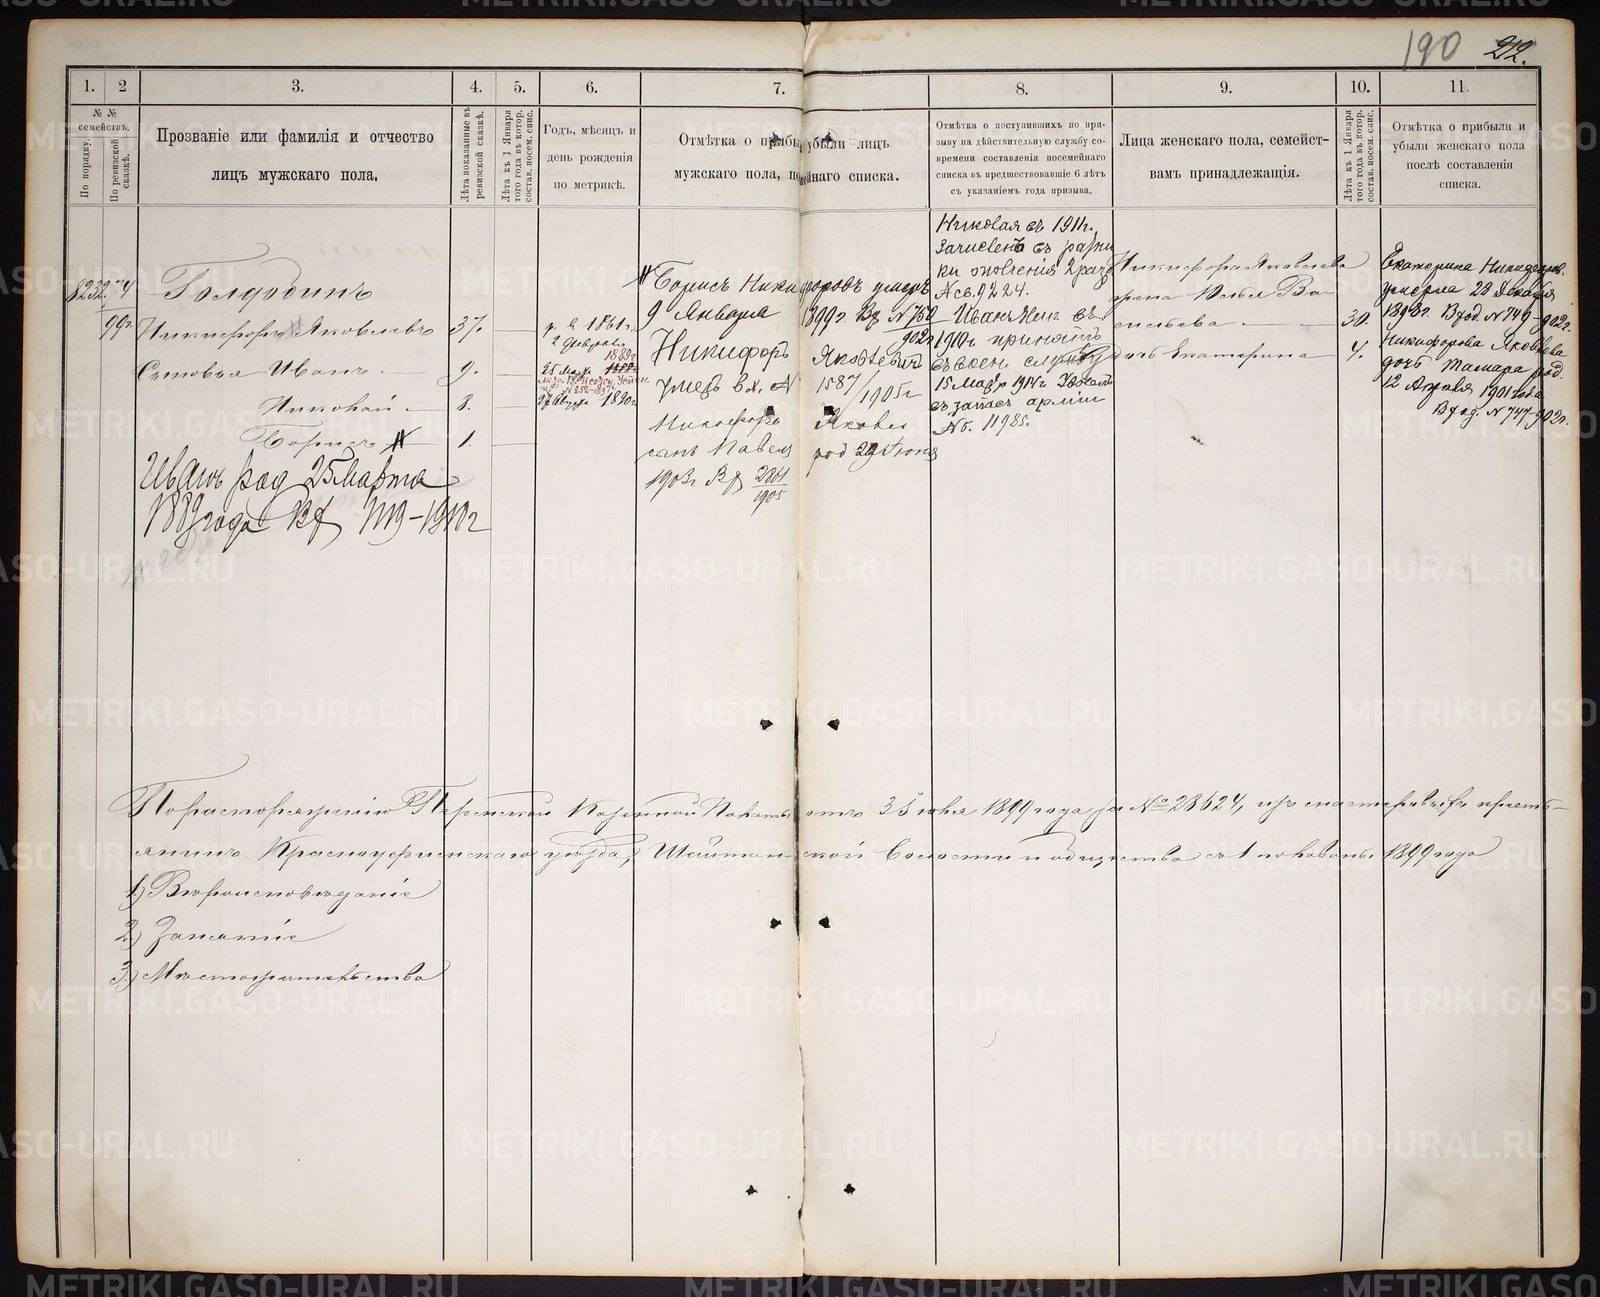 190 212.
1. 2 3. 4. 5. 6. 7. 8. 9. 10. 11.
№ № семействъ.
По порядку.
По ревизской сказкѣ.
Прозваніе или фамилія и отчество
лицъ мужскаго пола.
Лѣта показанные въ ревизской сказкѣ.
Лѣта къ 1 Января того года въ котор. состав. посем. спис.
Годъ, мѣсяцъ и
день рожденія
по метрикѣ.
Отмѣтка о прибы убыли лицъ
мужскаго пола, по мейнаго списка.
Отмѣтка о поступившихъ по при-
зыву на дѣйствительную службу со-
времени составленія посемейнаго
списка въ предшествовавшіе 6 лѣтъ
съ указаніемъ года призыва.
Лица женскаго пола, семейст-
вамъ принадлежащія.
Лѣта къ 1 Января того года въ котор. состав. посем. спис.
Отмѣтка о прибыли и
убыли женскаго пола
послѣ составленія
списка.
99г.
Никифоръ Яковлевъ 37.
Сыновья Иванъ 9.
Николай 8.
Борисъ 1.
Иванъ род 25 Марта
1889 года Вх 1119-1910 г
р. в 1861 г.
2 Февраля
1889 г
1890 г
Борисъ Никифоровъ умеръ
9 Января 1899 г. Вх № 750
902 г
Никифоръ Яковлевичъ
умеръ вх. № 1587/1905 г
Никифора Яковл
сынъ Павелъ род 29 Іюня
1903 г Вх 2861
1905
Николая въ 1911 г.
зачисленъ въ ратни
ки ополченія 2 разр
№ св. 9224.
Иванъ Ник въ
1910 г принятъ
въ воен службу
15 Мар 1914 г Уволенъ
въ запасъ арміи
№ б. 11985.
Никифора Яковлева
жена Ва-
сильева 30.
дочь Екатерина 4.
Екатерина Никифоров.
умерла 23 Декабря
1898 г. Вход. № 749-902 г.
Никифорова Яковлева
дочь Тамара род.
12 Апрѣля 1901 года
Вход. № 747-902 г.
По распоряженію Пермской Казенной Палаты отъ 3 Іюня 1899 года за № 28624, изъ мастеровыхъ кресть-
янинъ Красноуфимскаго уѣзда, Шайтанской Волости и общества съ 1 половины 1899 года
1) Вѣроисповѣданіе
2) Занятіе
3) Мѣстожительство
METRIKI.GASO-URAL.RU